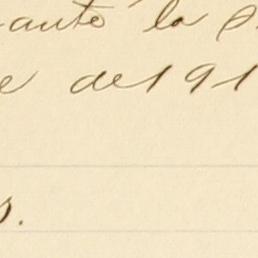 ante la
e de 191
s.